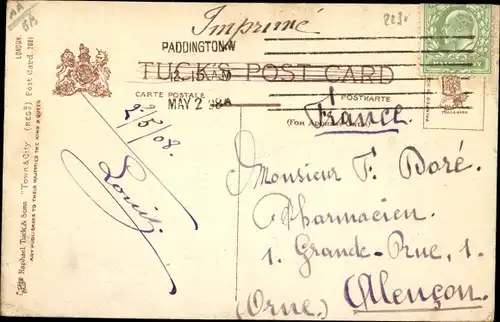 Imprimé
PADDINGTON W
TUCK'S POST CARD
CARTE POSTALE
POSTKARTE
MAY 2 08
France
(For Address Only)
2/5/08.
Louis
Monsieur F. Doré.
Pharmacien.
1. Grande-Rue, 1.
Alençon.
(Orne)
Raphael Tuck & Sons "Town & City" (REGD) Post Card 2081 LONDON
ART PUBLISHERS TO THEIR MAJESTIES THE KING & QUEEN